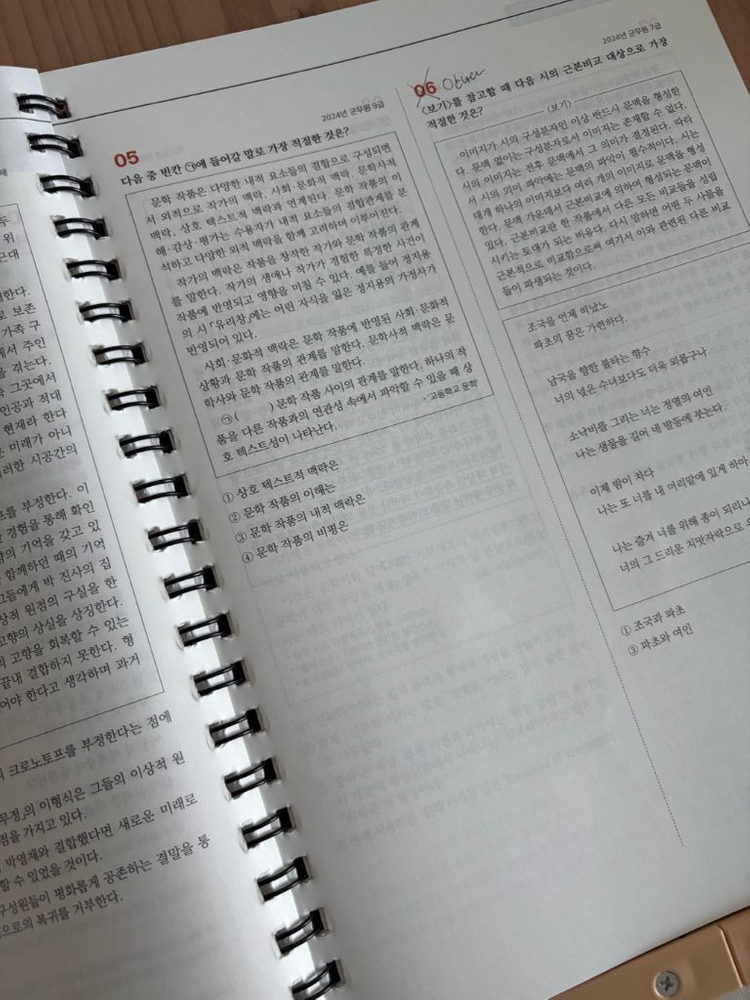 두
위
근대
한다.
로 보존
가족 구
에서 주인
을 겪는다.
그곳에서
인공과 적대
현재라 한다
미래가 아니
러한 시공간의
를 부정한다. 이
경험을 통해 확인
향의 기억을 갖고 있
함께하던 때의 기억
그들에게 박 진사의 집
상적 원점의 구실을 한
고향의 상실을 상징한다.
의 고향을 회복할 수 있는
끝내 결합하지 못한다. 형
어야 한다고 생각하며 과거
크로노토프를 부정한다는 점에
무정』의 이형식은 그들의 이상적 원
점을 가지고 있다.
박영채와 결합했다면 새로운 미래로
할 수 있었을 것이다.
구성원들이 평화롭게 공존하는 결말을 통
으로의 복귀를 거부한다.
2024년 군무원 9급
05
다음 중 빈칸 ㉠에 들어갈 말로 가장 적절한 것은?
문학 작품은 다양한 내적 요소들의 결합으로 구성되면
서 외적으로 작가의 맥락, 사회·문화적 맥락, 문학사적
맥락, 상호 텍스트적 맥락과 연계된다. 문학 작품의 이
해·감상·평가는 수용자가 내적 요소들의 결합관계를 분
석하고 다양한 외적 맥락을 함께 고려하며 이루어진다.
작가의 맥락은 작품을 창작한 작가와 문학 작품의 관계
를 말한다. 작가의 생애나 작가가 경험한 특정한 사건이
작품에 반영되고 영향을 미칠 수 있다. 예를 들어 정지용
의 시 「유리창」에는 어린 자식을 잃은 정지용의 가정사가
반영되어 있다.
사회·문화적 맥락은 문학 작품에 반영된 사회·문화적
상황과 문학 작품의 관계를 말한다. 문학사적 맥락은 문
학사와 문학 작품의 관계를 말한다.
㉠( ) 문학 작품 사이의 관계를 말한다. 하나의 작
품을 다른 작품과의 연관성 속에서 파악할 수 있을 때 상
호 텍스트성이 나타난다.
- '고등학교 문학'
① 상호 텍스트적 맥락은
② 문학 작품의 이해는
③ 문학 작품의 내적 맥락은
④ 문학 작품의 비평은
2024년 군무원 7급
06
<보기>를 참고할 때 다음 시의 근본비교 대상으로 가장
적절한 것은?
<보기>
이미지가 시의 구성분자인 이상 반드시 문맥을 형성한
다. 문맥 없이는 구성분자로서 이미지는 존재할 수 없다.
시의 이미지는 전후 문맥에서 그 의미가 결정된다. 따라
서 시의 의미 파악에는 문맥의 파악이 필수적이다. 시는
대개 하나의 이미지보다 여러 개의 이미지로 문맥을 형성
한다. 문맥 가운데서 근본비교에 의하여 형성되는 문맥이
있다. 근본비교란 한 작품에서 다른 모든 비교들을 성립
시키는 토대가 되는 비유다. 다시 말하면 어떤 두 사물을
근본적으로 비교함으로써 여기서 이와 관련된 다른 비교
들이 파생되는 것이다.
조국을 언제 떠났노
파초의 꿈은 가련하다.
남국을 향한 불타는 향수
너의 넋은 수녀보다도 더욱 외롭구나.
소낙비를 그리는 너는 정열의 여인
나는 샘물을 길어 네 발등에 붓는다.
이제 밤이 차다
나는 또 너를 내 머리맡에 있게 하마
나는 즐겨 너를 위해 종이 되리니
너의 그 드리운 치맛자락으로
① 조국과 파초
③ 파초와 여인